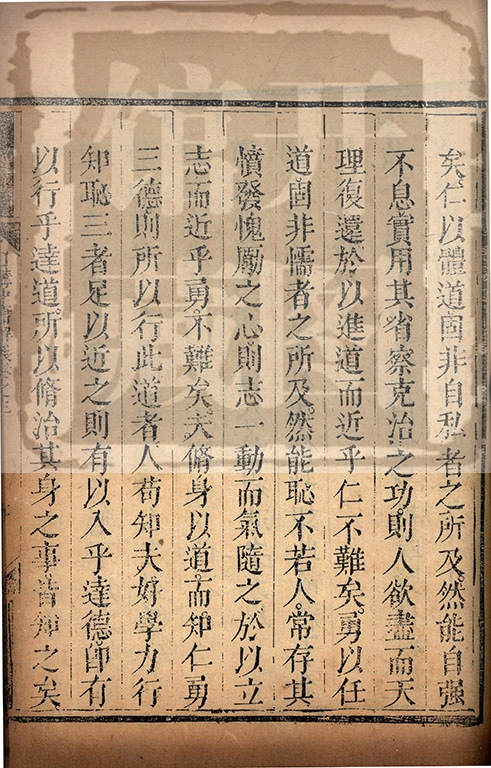 矣仁以體道固非自私者之所及然能自强
不息實用其省察克治之功則人欲盡而天
理復還於以進道而近乎仁不難矣勇以任
道固非懦者之所及然能恥不若人常存其
憤發愧勵之心則志一動而氣隨之於以立
志而近乎勇不難矣夫脩身以道而知仁勇
三德則所以行此道者人苟知夫好學力行
知恥三者足以近之則有以入乎達德卽有
以行乎達道所以脩治其身之事皆知之矣